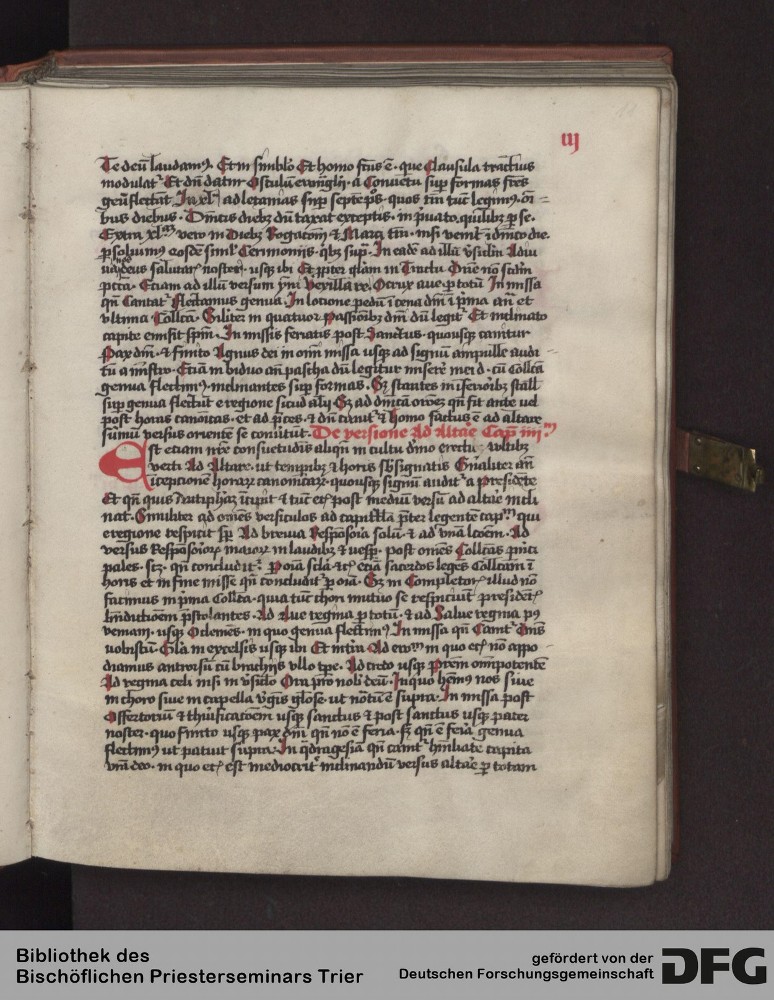 iij
Te deū laudamꝰ. Et in simblo Et homo fcūs ē. que Clausula tractius
modulat᷑ Et dn̄ datur Osculū a Conuētu suꝑ formas
Jn xlᵃ ad letanias suꝑ septē ps. quos tm̄ tūc legimꝰ. oī-
bus diebus. Dn̄icis diebꝫ dū taxat exceptis. in puato. ꝑ se.
Extra xlᵃᵐ vero in Diebꝫ Rogacōm̄ & Marci tm̄. nisi venīt ī dn̄ico die.
ꝑsoluimꝰ eosdē Cerimonijs. qͥbꝫ supᵃ. Jn eadē ad illū Adiu
deus salutar̄ noster. usqꝫ ibi Et ꝓpter glām in Tractu Dn̄e nō scdm̄
pctā. Etiam ad illū versum ymni Vexilla re. O crux aue. ꝑ totū Jn missa
qn̄ Cantat᷑ Flectamus genua. Jn locione pedū ī cena dm̄ ī pͥma an̄ et
vltima Collcā. Siliter in quatuor Passiōibꝫ dm̄ dū legit᷑ Et inclinato
capite emisit spm̄. Jn missis feriatis post Sanctus. quousqꝫ canitur
Pax dm̄. & finito Agnus dei in om̄i missa usqꝫ ad signū ampulle audi
tū a mīstro. Etiā in biduo an̄ pascha dū legitur miserē mei d. cū Collcā
genua flectimꝰ. inclinantes suꝑ formas. Sꝫ stantes in īferiorībꝫ stall
suꝑ genua flectūt e regione sicud alij. Sꝫ ad dn̄icā orōeꝫ qn̄ fit ante vel
post horas canōicas. et ad ꝑces. & dū canit᷑ & homo factus ē ad altare
sumū versus oriente se conūtūt. De versione Ad Altare Cap iiijᵐ
Est etiam nr̄e consuetudis aliqn̄ in cultu dīno erectis vultibꝫ
verti Ad Altare. ut tempibꝫ & horis sb̄signatis Gn̄aliter an̄
īcepcionē horarꝫ canonicarꝫ. quousqꝫ signū audit᷑ a presidēte
Et qn̄ quis īcipit & tūc etꝫ post mediū versū ad altare incli
nat. Similiter ad om̄es versiculos ad capitlā p̄ter legente capᵐ qui
e regione respicit sꝑ Ad breuia Respōsoria solū. & ad vnā lcōem. Ad
versus Respōsoriorꝫ maiorꝫ in laudibꝫ & vesꝑ. post om̄es Collcās pͥnci
pales. scꝫ. qn̄ concludit᷑: Ꝑ oīa sclā. &cꝫ etiā sacerdos legēs Collcam ī
horis et in fine misse qn̄ concludit᷑ ꝑ oīa. Sꝫ in Completorꝫ illud nō
facimus in pͥma Collcā. quia tūc chori mutuo se respiciūt presidētꝫ
bn̄dictioēm p̄stolantes. Ad Aue regina ꝑ totū. & ad Salue regina pꝰ
veniam. usqꝫ O clemēs. in quo genua flectimꝰ Jn missa qn̄ Canit᷑ Dn̄s
vobiscū. Glā in excelsis usqꝫ ibi Et in tr̄ra Ad in quo etꝫ nō appo
diamus antrorsū cū brachijs vllo tꝑe. Ad credo usqꝫ Prem omīpotentē
Ad regina celi nisi in v̄siclo Ora ꝓ nob̄ deū. Jn quo hēmꝰ nos siue
in choro siue in capella v̄gīs glōse. ut notū ē supra. Jn missa post
Offertoriū & thurificacoēm usqꝫ sanctus & post sanctus usqꝫ pater
noster. quo finito usqꝫ pax dm̄. qn̄ nō ē feria. sꝫ qn̄ ē feria genua
flectimꝰ ut patuit supra. Jn qͣdragesīa qn̄ canit᷑ hūiliate capita
vr̄a deo. in quo etꝫ est mediocrit᷑ inclinandū versus altare ꝑ totam
Bibliothek des
Bischöflichen Priesterseminars Trier
gefördert von der
Deutschen Forschungsgemeinschaft DFG